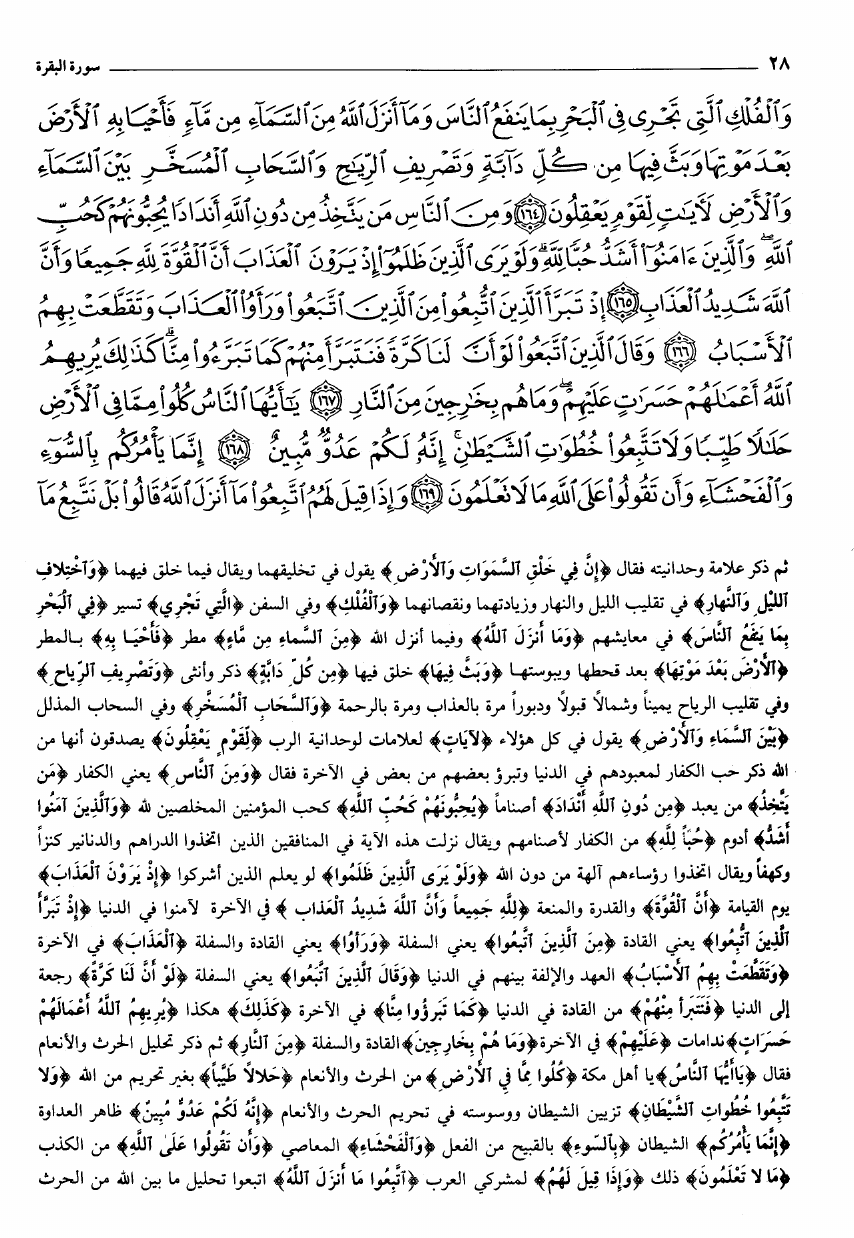 ٢٨ سورة البقرة
وَٱلْفُلْكِ ٱلَّتِى تَجْرِى فِى ٱلْبَحْرِ بِمَا يَنفَعُ ٱلنَّاسَ وَمَآ أَنزَلَ ٱللَّهُ مِنَ ٱلسَّمَآءِ مِن مَّآءٍ فَأَحْيَا بِهِ ٱلْأَرْضَ
بَعْدَ مَوْتِهَا وَبَثَّ فِيهَا مِن كُلِّ دَآبَّةٍ وَتَصْرِيفِ ٱلرِّيَٰحِ وَٱلسَّحَابِ ٱلْمُسَخَّرِ بَيْنَ ٱلسَّمَآءِ
وَٱلْأَرْضِ لَءَايَٰتٍ لِّقَوْمٍ يَعْقِلُونَ ﴿١٦٤﴾ وَمِنَ ٱلنَّاسِ مَن يَتَّخِذُ مِن دُونِ ٱللَّهِ أَندَادًا يُحِبُّونَهُمْ كَحُبِّ
ٱللَّهِ ۖ وَٱلَّذِينَ ءَامَنُوٓا۟ أَشَدُّ حُبًّا لِّلَّهِ ۗ وَلَوْ يَرَى ٱلَّذِينَ ظَلَمُوٓا۟ إِذْ يَرَوْنَ ٱلْعَذَابَ أَنَّ ٱلْقُوَّةَ لِلَّهِ جَمِيعًا وَأَنَّ
ٱللَّهَ شَدِيدُ ٱلْعَذَابِ ﴿١٦٥﴾ إِذْ تَبَرَّأَ ٱلَّذِينَ ٱتُّبِعُوا۟ مِنَ ٱلَّذِينَ ٱتَّبَعُوا۟ وَرَأَوُا۟ ٱلْعَذَابَ وَتَقَطَّعَتْ بِهِمُ
ٱلْأَسْبَابُ ﴿١٦٦﴾ وَقَالَ ٱلَّذِينَ ٱتَّبَعُوا۟ لَوْ أَنَّ لَنَا كَرَّةً فَنَتَبَرَّأَ مِنْهُمْ كَمَا تَبَرَّءُوا۟ مِنَّا ۗ كَذَٰلِكَ يُرِيهِمُ
ٱللَّهُ أَعْمَٰلَهُمْ حَسَرَٰتٍ عَلَيْهِمْ ۖ وَمَا هُم بِخَٰرِجِينَ مِنَ ٱلنَّارِ ﴿١٦٧﴾ يَٰٓأَيُّهَا ٱلنَّاسُ كُلُوا۟ مِمَّا فِى ٱلْأَرْضِ
حَلَٰلًا طَيِّبًا وَلَا تَتَّبِعُوا۟ خُطُوَٰتِ ٱلشَّيْطَٰنِ ۚ إِنَّهُۥ لَكُمْ عَدُوٌّ مُّبِينٌ ﴿١٦٨﴾ إِنَّمَا يَأْمُرُكُم بِٱلسُّوٓءِ
وَٱلْفَحْشَآءِ وَأَن تَقُولُوا۟ عَلَى ٱللَّهِ مَا لَا تَعْلَمُونَ ﴿١٦٩﴾ وَإِذَا قِيلَ لَهُمُ ٱتَّبِعُوا۟ مَآ أَنزَلَ ٱللَّهُ قَالُوا۟ بَلْ نَتَّبِعُ مَآ
ثم ذكر علامة وحدانيته فقال ﴿إِنَّ فِي خَلْقِ ٱلسَّمَوَاتِ وَٱلأَرْضِ﴾ يقول في تخليقهما ويقال فيما خلق فيهما ﴿وَٱخْتِلافِ
ٱللَّيْلِ وَٱلنَّهارِ﴾ في تقليب الليل والنهار وزيادتهما ونقصانهما ﴿وَٱلْفُلْكِ﴾ وفي السفن ﴿الَّتِي تَجْرِي﴾ تسير ﴿فِي ٱلْبَحْرِ
بِمَا يَنفَعُ ٱلنَّاسَ﴾ في معايشهم ﴿وَمَا أَنزَلَ ٱللَّهُ﴾ وفيما أنزل الله ﴿مِنَ ٱلسَّماءِ مِن مَّاءٍ﴾ مطر ﴿فَأَحْيَا بِهِ﴾ بالمطر
﴿ٱلأَرْضَ بَعْدَ مَوْتِهَا﴾ بعد قحطها ويبوستها ﴿وَبَثَّ فِيهَا﴾ خلق فيها ﴿مِن كُلِّ دَابَّةٍ﴾ ذكر وأنثى ﴿وَتَصْرِيفِ ٱلرِّياحِ﴾
وفي تقليب الرياح يميناً وشمالاً قبولاً ودبوراً مرة بالعذاب ومرة بالرحمة ﴿وَٱلسَّحَابِ ٱلْمُسَخَّرِ﴾ وفي السحاب المذلل
﴿بَيْنَ ٱلسَّمَاءِ وَٱلأَرْضِ﴾ يقول في كل هؤلاء ﴿لآيَاتٍ﴾ لعلامات لوحدانية الرب ﴿لِّقَوْمٍ يَعْقِلُونَ﴾ يصدقون أنها من
الله ذكر حب الكفار لمعبودهم في الدنيا وتبرؤ بعضهم من بعض في الآخرة فقال ﴿وَمِنَ ٱلنَّاسِ﴾ يعني الكفار ﴿مَن
يَتَّخِذُ﴾ من يعبد ﴿مِن دُونِ ٱللَّهِ أَنْدَادًا﴾ أصناماً ﴿يُحِبُّونَهُمْ كَحُبِّ ٱللَّهِ﴾ كحب المؤمنين المخلصين لله ﴿وَٱلَّذِينَ آمَنُوا
أَشَدُّ﴾ أدوم ﴿حُبّاً لِلَّهِ﴾ من الكفار لأصنامهم ويقال نزلت هذه الآية في المنافقين الذين اتخذوا الدراهم والدنانير كنزاً
وكهفاً ويقال اتخذوا رؤساءهم آلهة من دون الله ﴿وَلَوْ يَرَى ٱلَّذِينَ ظَلَمُوا﴾ لو يعلم الذين أشركوا ﴿إِذْ يَرَوْنَ ٱلْعَذَابَ﴾
يوم القيامة ﴿أَنَّ ٱلْقُوَّةَ﴾ والقدرة والمنعة ﴿لِلَّهِ جَمِيعاً وَأَنَّ ٱللَّهَ شَدِيدُ ٱلْعَذَابِ﴾ في الآخرة لآمنوا في الدنيا ﴿إِذْ تَبَرَّأَ
ٱلَّذِينَ ٱتُّبِعُوا﴾ يعني القادة ﴿مِنَ ٱلَّذِينَ ٱتَّبَعُوا﴾ يعني السفلة ﴿وَرَأَوُا﴾ يعني القادة والسفلة ﴿ٱلْعَذَابَ﴾ في الآخرة
﴿وَتَقَطَّعَتْ بِهِمُ ٱلأَسْبَابُ﴾ العهد والإلفة بينهم في الدنيا ﴿وَقَالَ ٱلَّذِينَ ٱتَّبَعُوا﴾ يعني السفلة ﴿لَوْ أَنَّ لَنَا كَرَّةً﴾ رجعة
إلى الدنيا ﴿فَنَتَبَرَّأَ مِنْهُمْ﴾ من القادة في الدنيا ﴿كَمَا تَبَرَّؤُوا مِنَّا﴾ في الآخرة ﴿كَذَلِكَ﴾ هكذا ﴿يُرِيهِمُ ٱللَّهُ أَعْمَالَهُمْ
حَسَرَاتٍ﴾ ندامات ﴿عَلَيْهِمْ﴾ في الآخرة ﴿وَمَا هُمْ بِخَارِجِينَ﴾ القادة والسفلة ﴿مِنَ ٱلنَّارِ﴾ ثم ذكر تحليل الحرث والأنعام
فقال ﴿يَاأَيُّهَا ٱلنَّاسُ﴾ يا أهل مكة ﴿كُلُوا مِمَّا فِي ٱلأَرْضِ﴾ من الحرث والأنعام ﴿حَلالاً طَيِّباً﴾ بغير تحريم من الله ﴿وَلا
تَتَّبِعُوا خُطُواتِ ٱلشَّيْطَانِ﴾ تزيين الشيطان ووسوسته في تحريم الحرث والأنعام ﴿إِنَّهُ لَكُمْ عَدُوٌّ مُبِينٌ﴾ ظاهر العداوة
﴿إِنَّمَا يَأْمُرُكُم﴾ الشيطان ﴿بِٱلسُّوءِ﴾ بالقبيح من الفعل ﴿وَٱلْفَحْشَاءِ﴾ المعاصي ﴿وَأَن تَقُولُوا عَلَى ٱللَّهِ﴾ من الكذب
﴿مَا لا تَعْلَمُونَ﴾ ذلك ﴿وَإِذَا قِيلَ لَهُمُ﴾ لمشركي العرب ﴿ٱتَّبِعُوا مَا أَنزَلَ ٱللَّهُ﴾ اتبعوا تحليل ما بين الله من الحرث